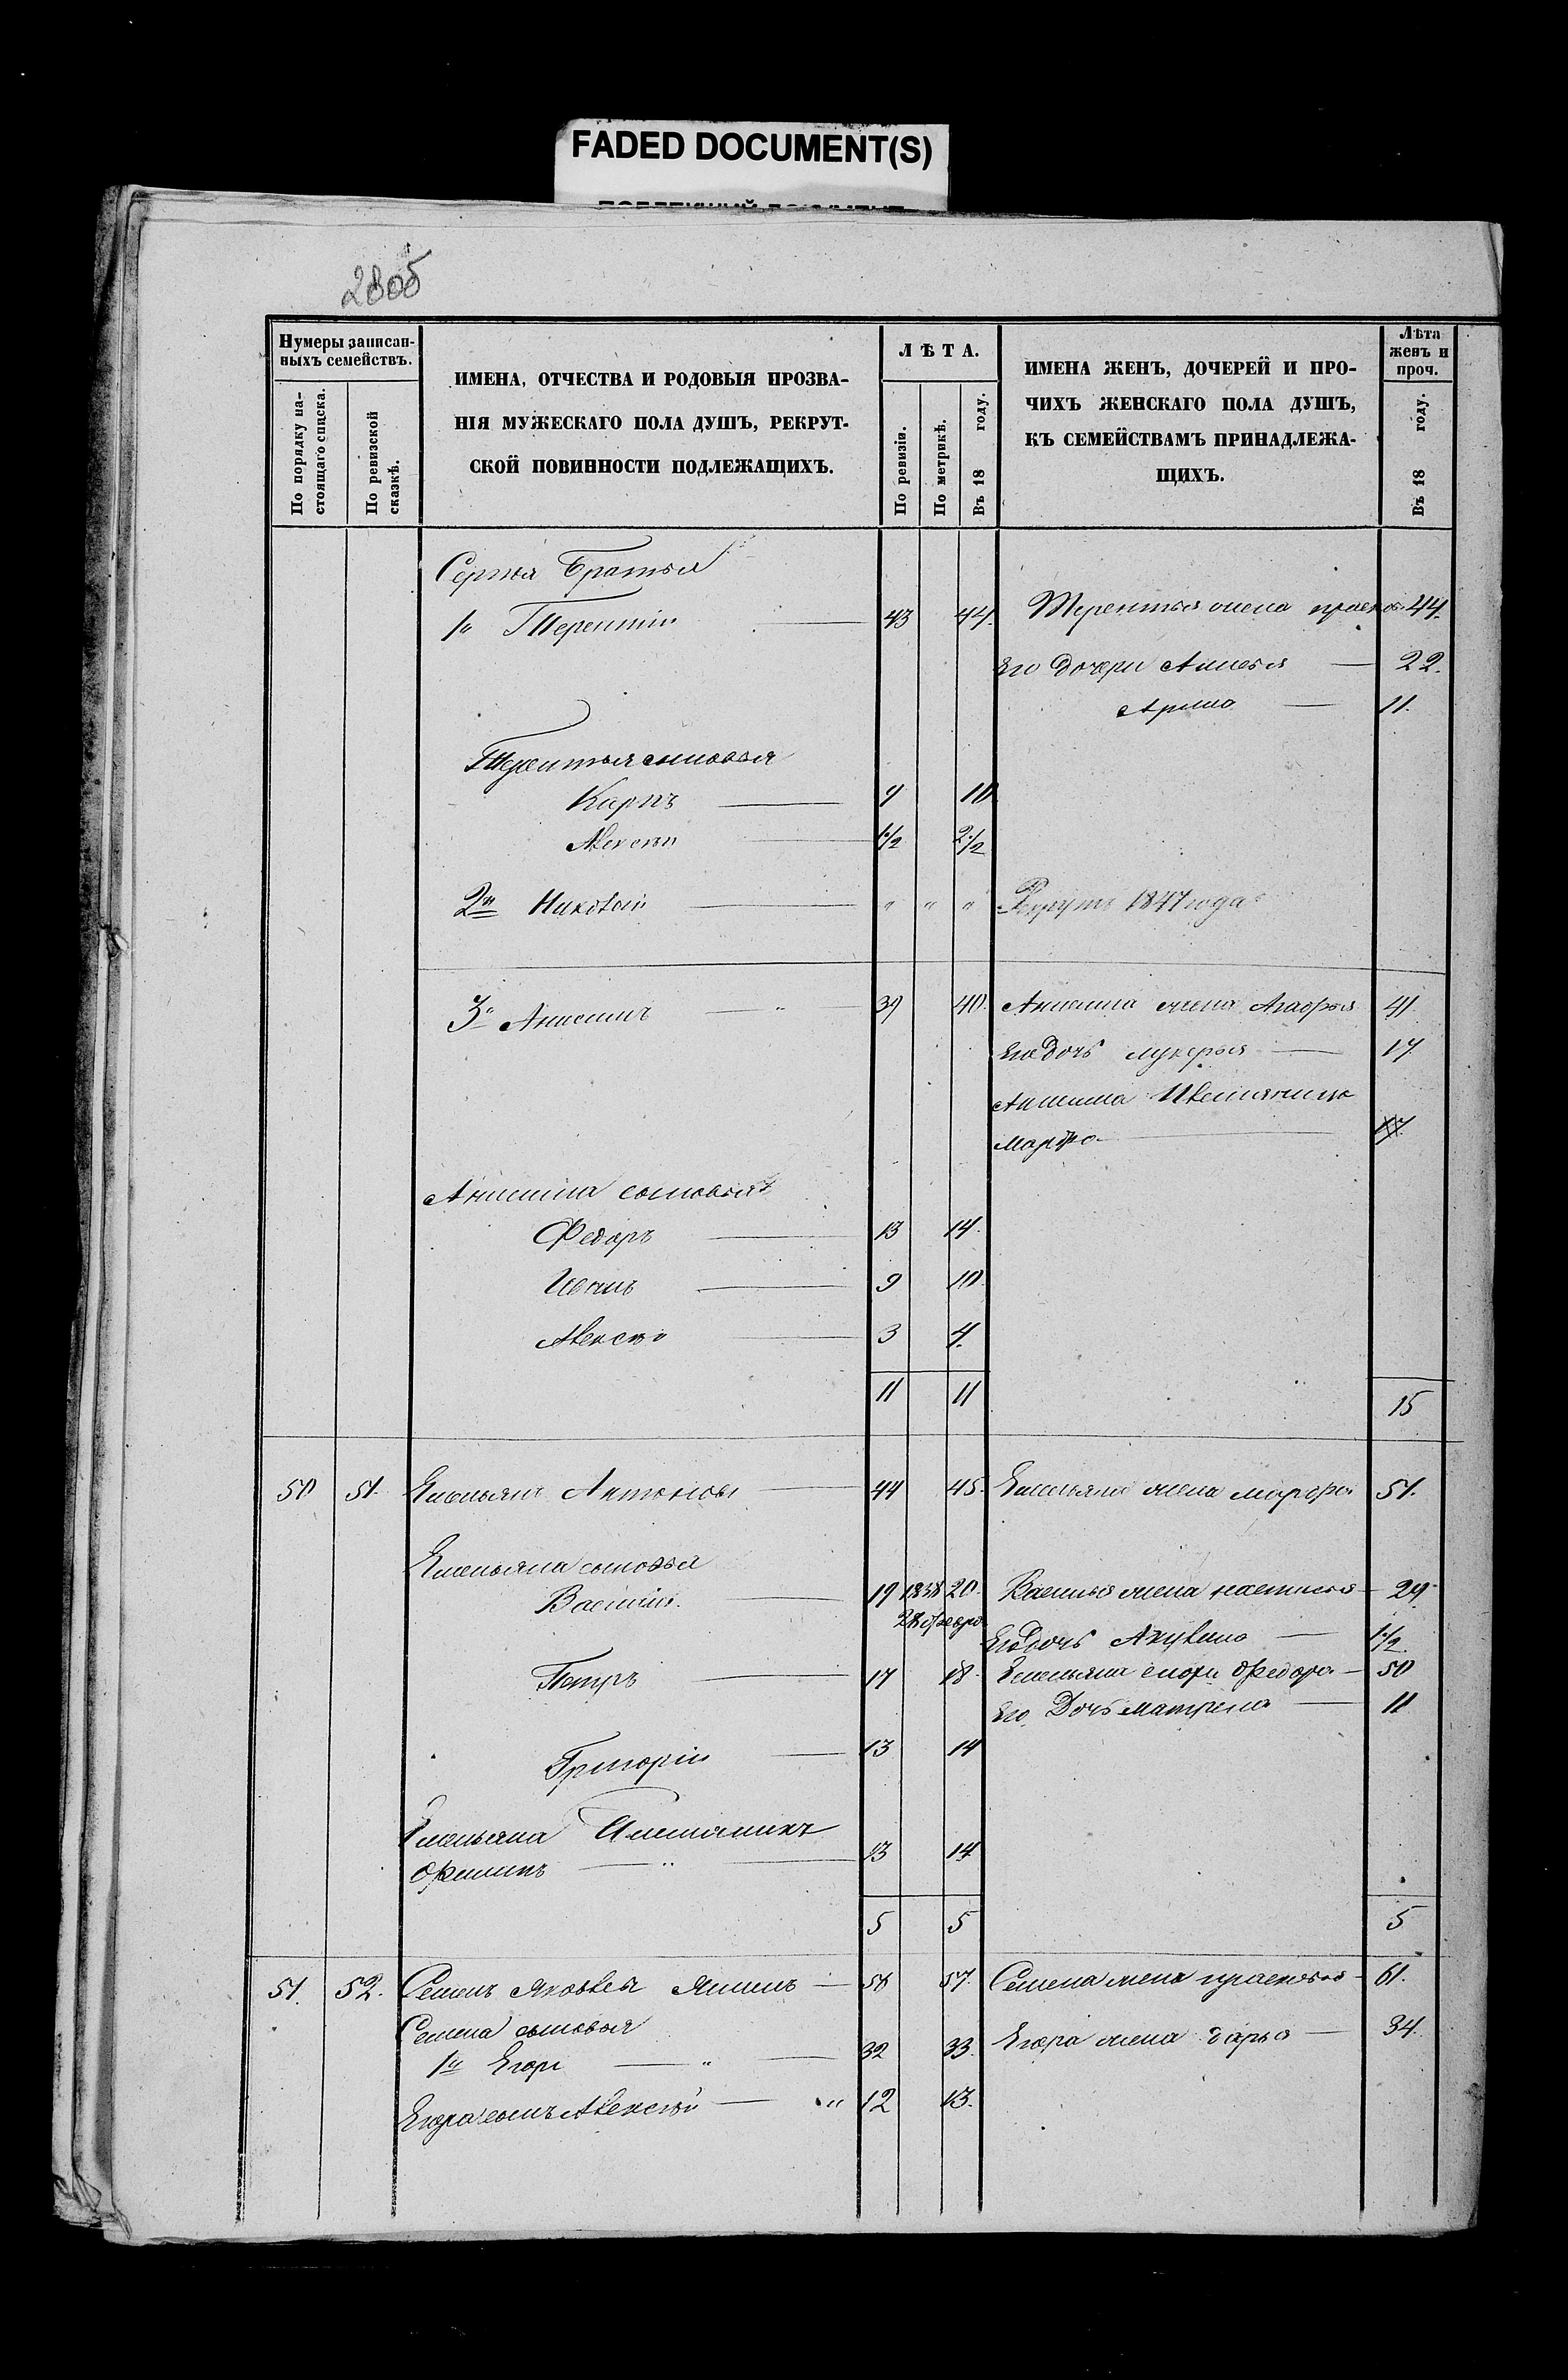 FADED DOCUMENT(S)
280об
Нумеры записан-
ныхъ семействъ.
По порядку на-
стоящаго списка.
По ревизской
сказкѣ.
ИМЕНА, ОТЧЕСТВА И РОДОВЫЯ ПРОЗВА-
НІЯ МУЖЕСКАГО ПОЛА ДУШЪ, РЕКРУТ-
СКОЙ ПОВИННОСТИ ПОДЛЕЖАЩИХЪ.
ЛѢТА.
По ревизіи.
По метрикѣ.
Въ 18 году.
ИМЕНА ЖЕНЪ, ДОЧЕРЕЙ И ПРО-
ЧИХЪ ЖЕНСКАГО ПОЛА ДУШЪ,
КЪ СЕМЕЙСТВАМЪ ПРИНАДЛЕЖА-
ЩИХЪ.
Лѣта
женъ и
проч.
Въ 18 году.
Сергея Братья
1й Терентий 43 44. Терентья жена праск 44.
Его дочери 22.
Арина 11.
Терентья сыновья
Карпъ 9 10
Алексѣй 1/2 2 1/2
2й Николай " " " Рекрутъ 1847 года
3й Анисимъ " 39 40. Анисима жена Агафья 41
Его дочь лукерья 17.
Анисима Племянница
Марфа
Анисима сыновья
Федоръ 13 14.
Иванъ 9 10.
Алексѣй 3 4.
11 11 15
50 51. Емельянъ Антоновъ 44 45. Емельяна жена марфа 51.
Емельяна сыновья
Василий 19 1838 20. Василья жена настасья 24
Его дочь Акулина 1/2
Петръ 17 18. Емельяна федора 50
Его Дочь матрена 11
Григорій 13 14
Емельяна Племянникъ
Филипъ " 13 14
5 5 5
51. 52. Семенъ Яковлевъ 56 57. Семена жена прасковья 61.
Семена сыновья
1й Егоръ " 32 33. Егора жена дарья 34.
Егора сынъ Алексѣй " 12 13.